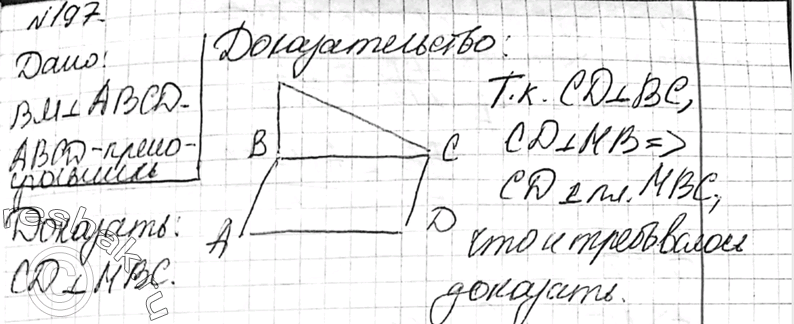 №197.
Дано:
BM⊥ABCD-
ABCD-прямо-
угольник
Доказать:
CD⊥MBC.
Доказательство:
B
C
A
D
Т.к. CD⊥BC,
CD⊥MB=>
CD⊥пл. MBC,
что и требовалось
доказать.
reshak.ru